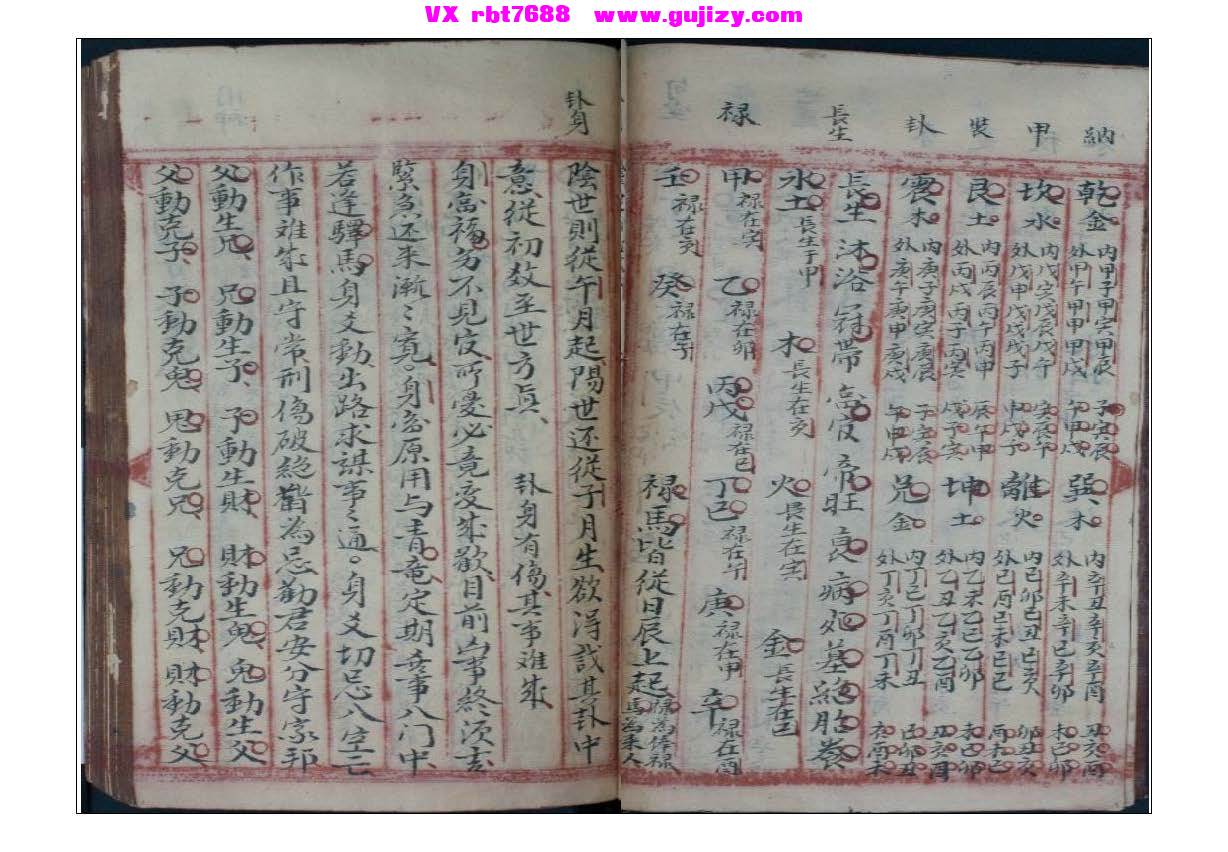 VX rbt7688 www.gujizy.com
納甲裝卦
乾金 內甲子甲寅甲辰 外甲午甲申甲戌 子寅辰 午申戌 巽木 內辛丑辛亥辛酉 外辛未辛巳辛卯 丑亥酉 未巳卯
坎水 內戊寅戊辰戊午 外戊申戊戌戊子 寅辰午 申戌子 離火 內己卯己丑己亥 外己酉己未己巳 卯丑亥 酉未巳
艮土 內丙辰丙午丙申 外丙戌丙子丙寅 辰午申 戌子寅 坤土 內乙未乙巳乙卯 外乙丑乙亥乙酉 未巳卯 丑亥酉
震木 內庚子庚寅庚辰 外庚午庚申庚戌 子寅辰 午申戌 兌金 內丁巳丁卯丁丑 外丁亥丁酉丁未 巳卯丑 亥酉未
長生
長生 沐浴 冠帶 臨官 帝旺 衰 病 死 墓 絕 胎 養
水土長生于申 木長生在亥 火長生在寅 金長生在巳
禄
甲禄在寅 乙禄在卯 丙戊禄在巳 丁己禄在午 庚禄在申 辛禄在酉
壬禄在亥 癸禄在子 禄馬皆從日辰上起 禄為俸禄 馬為來人
卦身
陰世則從午月起陽世还從子月生欲得識其卦中
意從初数至世方真、 卦身有傷其事难成
身臨福劳不見官所憂必竟变成歡目前凶事終須吉
緊急还来漸〻寬。身臨原用与青竜定期喜事入門中
若逢驛馬身爻動出路求謀事〻通。身爻切忌入空亡
作事难成且守常刑傷破絕皆為忌勸君安分守家邦
父動生兄、 兄動生子、 子動生財、 財動生鬼、 鬼動生父
父動克子、 子動克鬼、 鬼動克兄、 兄動克財、 財動克父